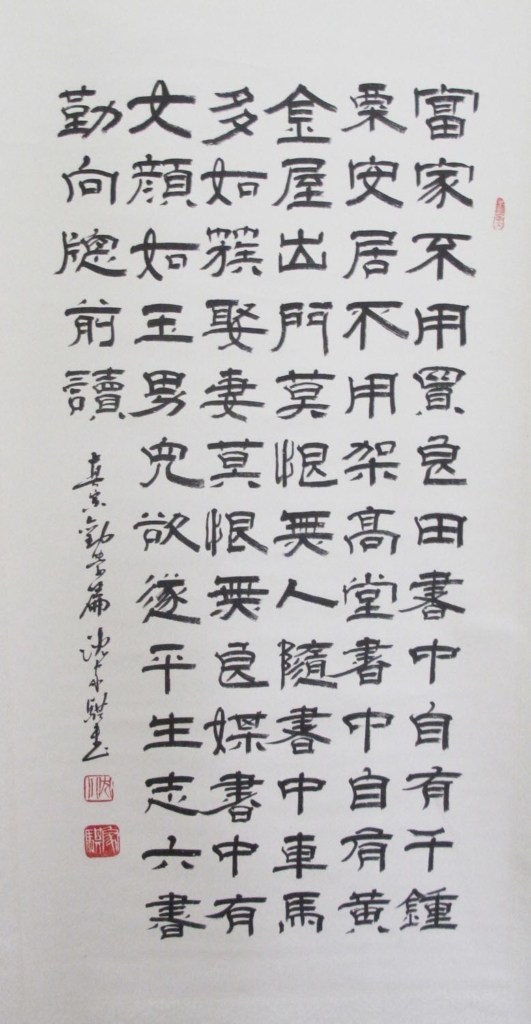 富家不用買良田書中自有千鍾
粟安居不用架高堂書中自有黃
金屋出門莫恨無人隨書中車馬
多如簇娶妻莫恨無良媒書中有
女顏如玉男兒欲遂平生志六書
勤向牕前讀
真宗勸學篇